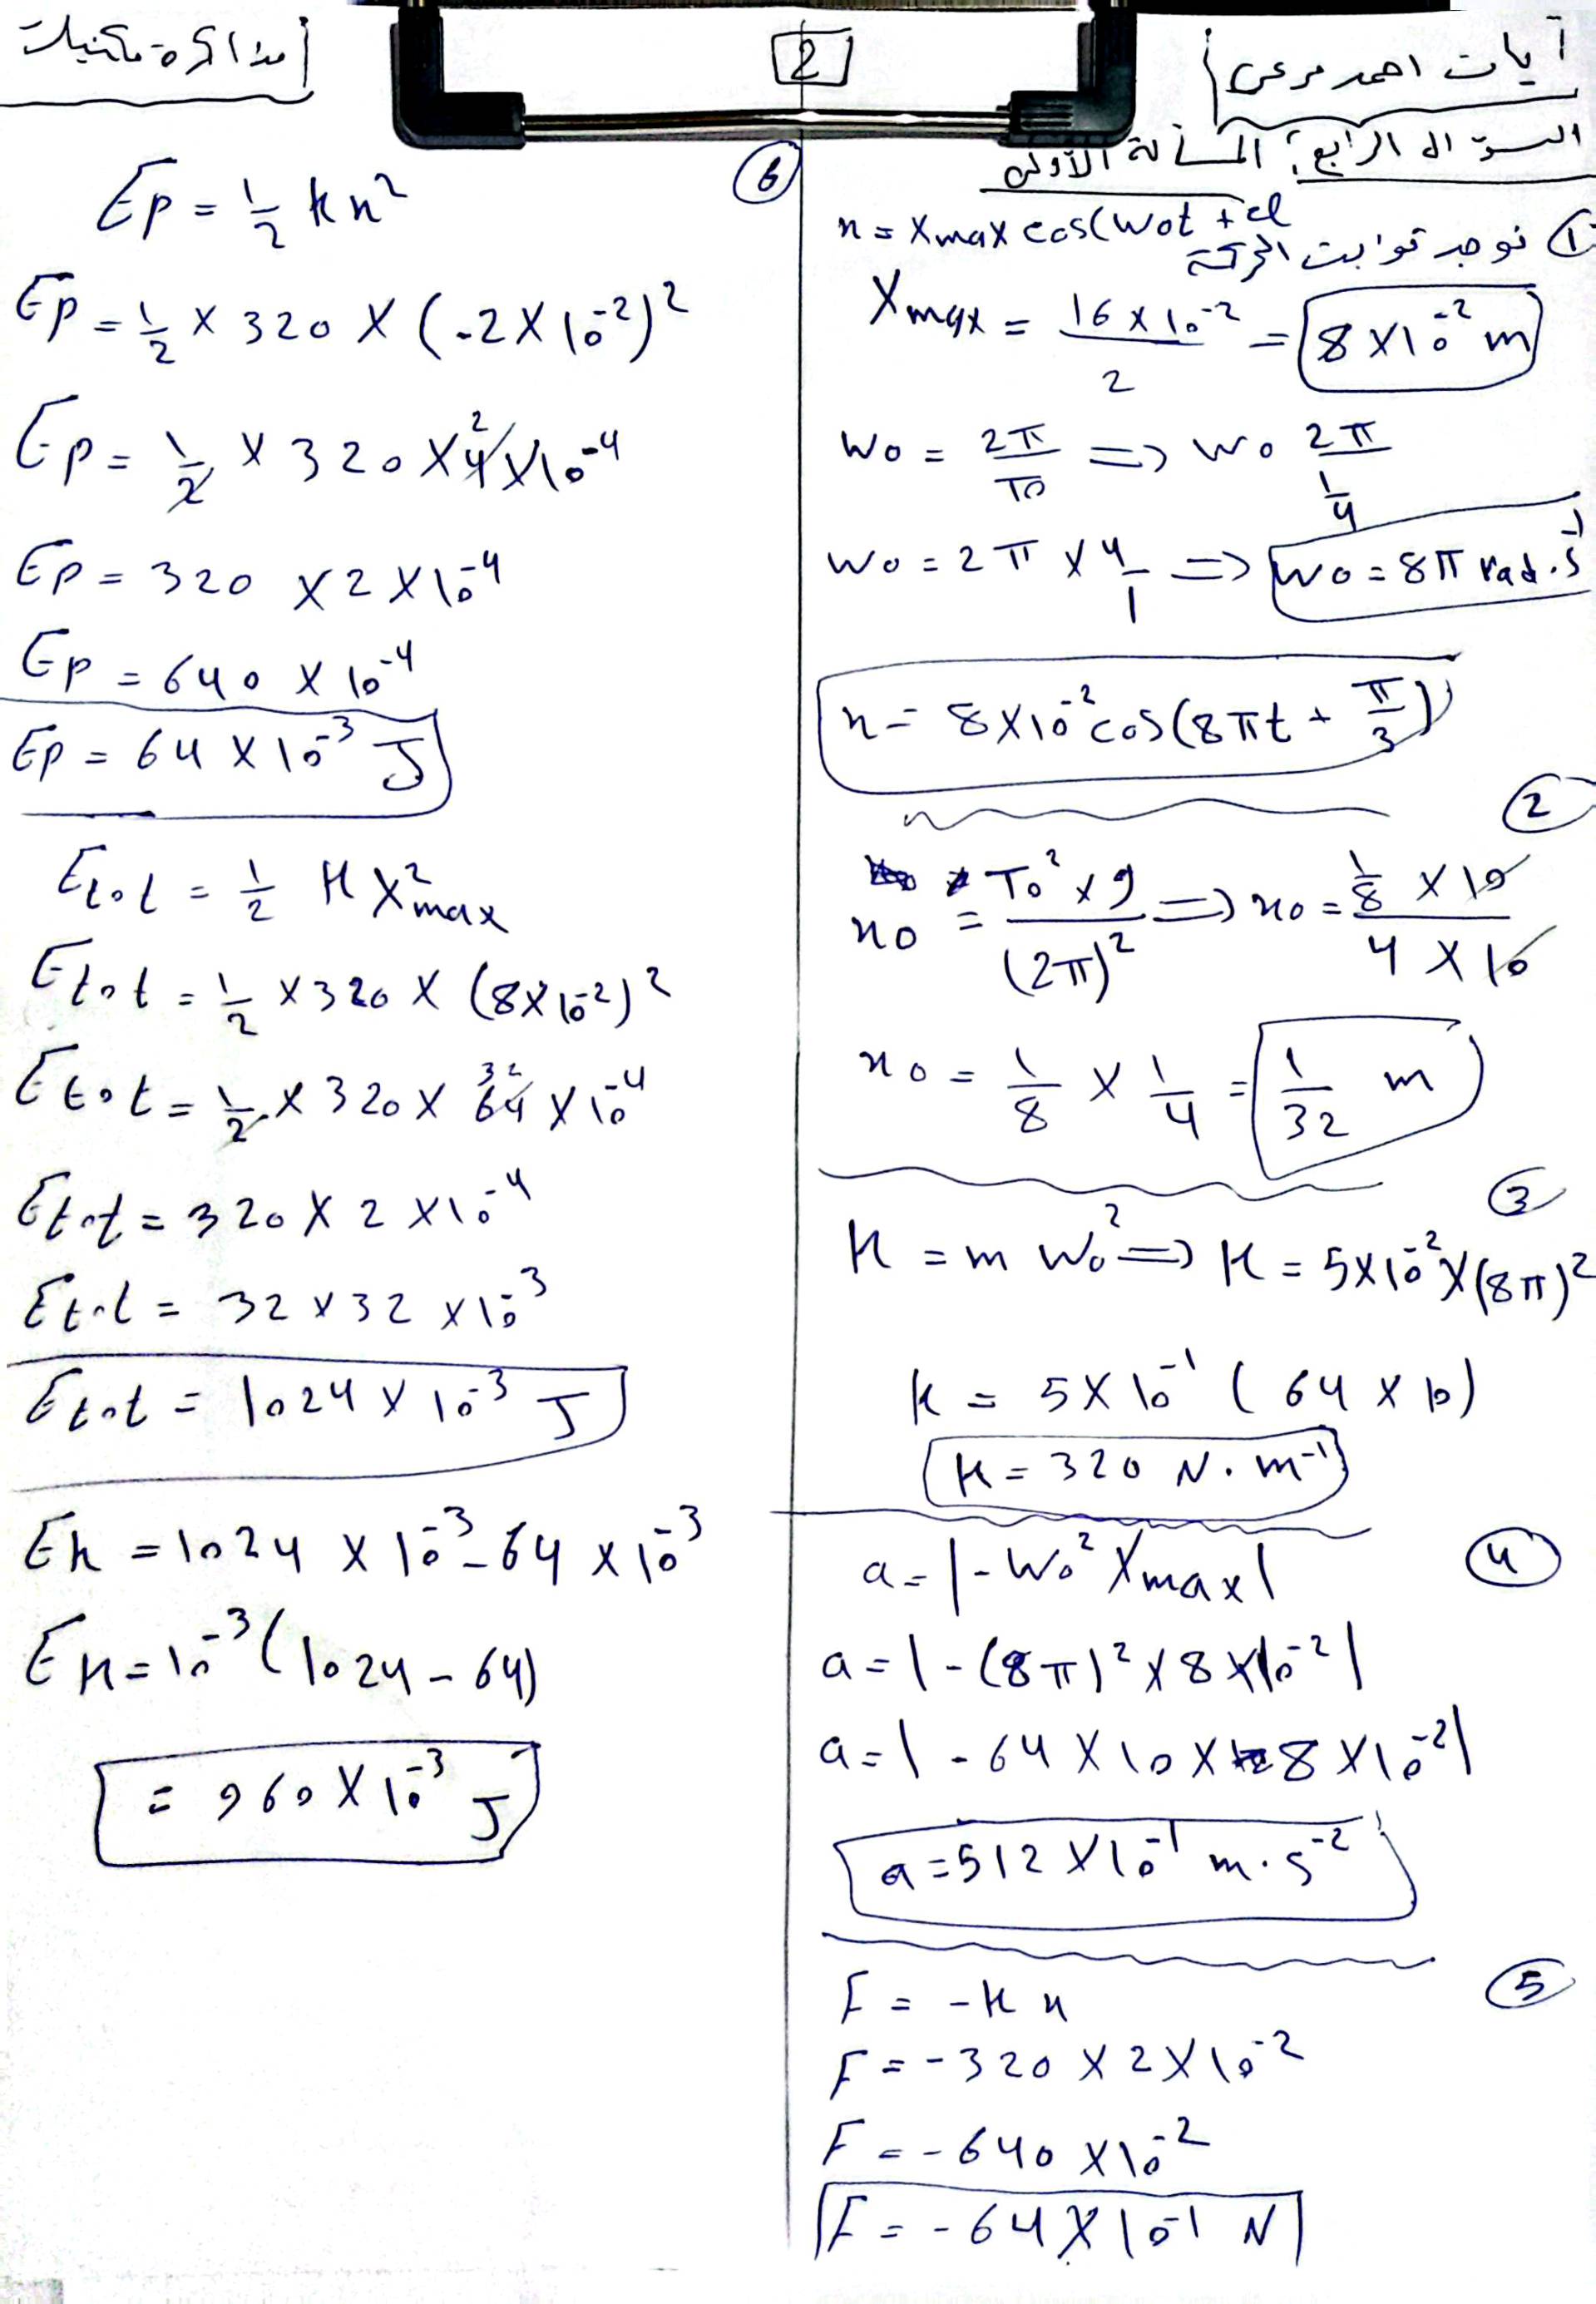 آيات احمد مرعي
2
مذاكرة مكثفات
السؤال الرابع: المسألة الأولى
① نوجد ثوابت الحركة
x = Xmax cos(wot + φ
Xmax = 16 × 10⁻² / 2 = 8 × 10⁻² m
wo = 2π / To => wo 2π / 1/4
wo = 2π × 4/1 => wo = 8π rad.s⁻¹
x = 8×10⁻² cos(8πt + π/3)
②
xo = To² × g / (2π)² => xo = 1/8 × 10 / 4 × 10
xo = 1/8 × 1/4 = 1/32 m
③
K = m wo² => K = 5×10⁻² × (8π)²
K = 5 × 10⁻¹ ( 64 × 10)
K = 320 N . m⁻¹
④
a = |- wo² Xmax|
a = |- (8π)² × 8 × 10⁻²|
a = |- 64 × 10 × 8 × 10⁻²|
a = 512 × 10⁻¹ m . s⁻²
⑤
F = - K x
F = - 320 × 2 × 10⁻²
F = - 640 × 10⁻²
F = - 64 × 10⁻¹ N
⑥
Ep = 1/2 k x²
Ep = 1/2 × 320 × (-2 × 10⁻²)²
Ep = 1/2 × 320 × 4 2 × 10⁻⁴
Ep = 320 × 2 × 10⁻⁴
Ep = 640 × 10⁻⁴
Ep = 64 × 10⁻³ J
Etot = 1/2 K X²max
Etot = 1/2 × 320 × (8 × 10⁻²)²
Etot = 1/2 × 320 × 64 32 × 10⁻⁴
Etot = 320 × 2 × 10⁻⁴
Etot = 32 × 32 × 10⁻³
Etot = 1024 × 10⁻³ J
Ek = 1024 × 10⁻³ - 64 × 10⁻³
EK = 10⁻³ (1024 - 64)
= 960 × 10⁻³ J